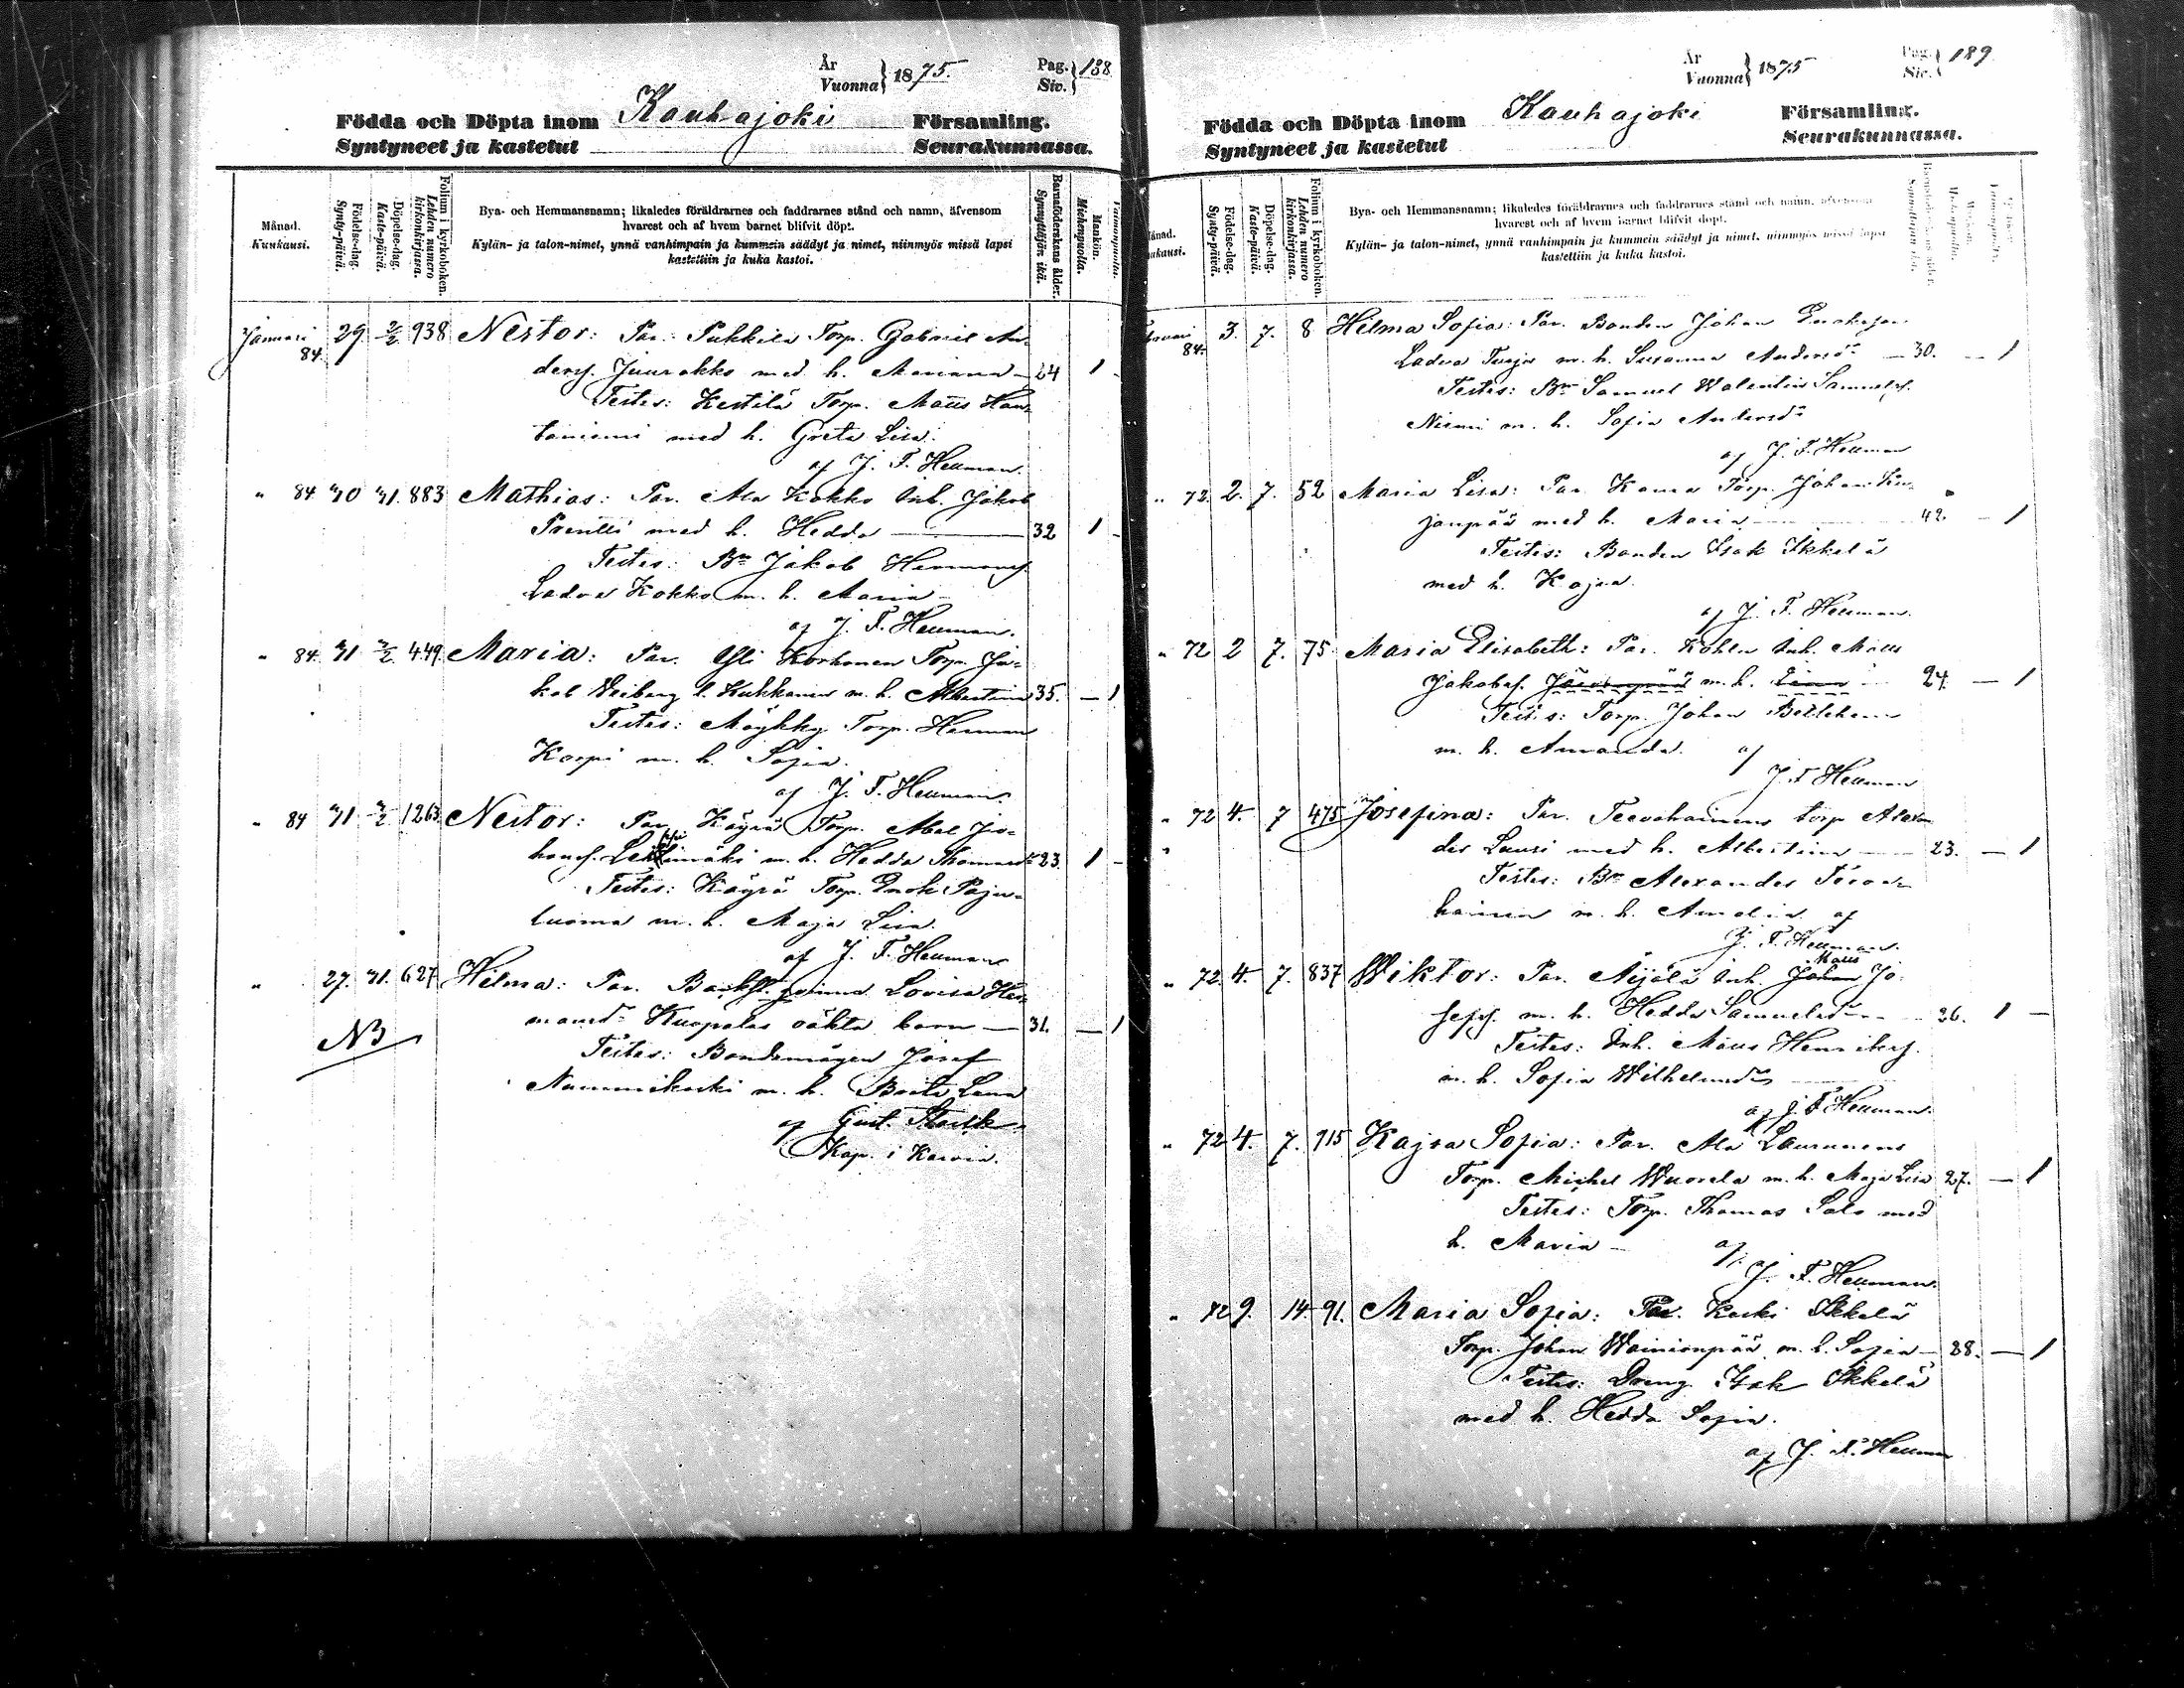 År
Vuonna } 1875.
Pag.
Siv. } 138
Födda och Döpta inom Kauhajoki Församling.
Syntyneet ja kastetut Seurakunnassa.
Månad.
Kuukausi.
Födelse-dag.
Synty-päivä.
Döpelse-dag.
Kaste-päivä.
Folium i kyrkoboken.
Lehden numero kirkonkirjassa.
Bya- och Hemmansnamn; likaledes föräldrarnes och faddrarnes stånd och namn, äfvensom
hvarest och af hvem barnet blifvit döpt.
Kylän- ja talon-nimet, ynnä vanhimpain ja kummein säädyt ja nimet, niinmyös missä lapsi
kastettiin ja kuka kastoi.
Barnaföderskans ålder.
Synnyttäjän ikä.
Mankön.
Miehenpuolia.
Januari 84. 29 2/2 938 Nestor: Par. Pukkila Torp. Gabriel An-
ders. Juurakko med h. Mariana — 24 1 -
Testes: Kestilä Torp. Matts Han-
taniemi med h. Greta Lisa.
af J. F. Hellman.
" 84 30 31. 883 Mathias: Par. Ala Kokko Inh. Jakob
Prentti med h. Hedda — 32 1 -
Testes: Bn Jakob Hermans.
Ladva Kokko m. h. Maria -
af J. F. Hellman.
" 84. 31 2/2 449. Maria: Par. Yli Korhonen Torp. Ja-
kob Wiiberg l. Kukkonen m. h. Albertina 35. — 1
Testes: Möykky Torp. Herman
Korpi m. h. Sofia.
af J. F. Hellman.
" 84 31 2/2 1263. Nestor: Par. Käyrä Torp. Abel Jo-
hans. Lehtimäki m. h. Hedda Thomasdr 23. 1 -
Testes: Käyrä Torp. Enok Paju-
luoma m. h. Maja Lisa.
af J. F. Hellman
" 27. 31. 627 Hilma: Par. Backst. qvinna Lovisa Her-
mansdr Kuopalas oäkta barn — 31. — 1
NB
Testes: Bondemågen Josef
Nummikoski m. h. Brita Lena
af Gust. Starck
Kap. i Karvia.
År
Vuonna } 1875
Pag.
Siv. } 189
Födda och Döpta inom Kauhajoki Församling.
Syntyneet ja kastetut Seurakunnassa.
Månad.
Kuukausi.
Födelse-dag.
Synty-päivä.
Döpelse-dag.
Kaste-päivä.
Folium i kyrkoboken.
Lehden numero kirkonkirjassa.
Bya- och Hemmansnamn; likaledes föräldrarnes och faddrarnes stånd och namn, äfvensom
hvarest och af hvem barnet blifvit döpt.
Kylän- ja talon-nimet, ynnä vanhimpain ja kummein säädyt ja nimet, niinmyös missä lapsi
kastettiin ja kuka kastoi.
84. 3. 7. 8 Hilma Sofia: Par. Bonden Johan
Ladva m. h. Susanna Andersdr — 30. — 1
Testes: Bn Samuel Walentin Samuels.
Niemi m. h. Sofia Andersdr
af J. F. Hellman
" 72. 2. 7. 52 Maria Lisa: Par. Torp. Johan
med h. Maria — 42. — 1
Testes: Bonden Isak Ikkelä
med h. Kajsa.
af J. F. Hellman.
" 72 2 7. 75 Maria Elisabeth: Par. Inh. Matts
Jakobs. m. h. 24. — 1
Testes: Torp. Johan Betlehem
m. h. Amanda. af
J. F. Hellman
" 72 4. 7 475 Josefina: Par. Teevahainens torp Alexan-
der Lauri med h. Albertina — 23. — 1
Testes: Bn Alexander Teeva-
hainen m. h. Amalia af
J. F. Hellman.
" 72. 4. 7. 837 Wiktor: Par. Äijälä Inh. Johan Matts Jo-
seps. m. h. Hedda Samuelsdr — 26. 1 —
Testes: Inh. Matts Henriks.
m. h. Sofia Wilhelmsdr
af J. F. Hellman.
" 72 4. 7. 915 Kajsa Sofia: Par. Ala Laurunens
Torp. Michel Wuorela m. h. Maja Lisa 27. — 1
Testes: Torp. Thomas Salo med
h. Maria — af
J. F. Hellman.
" 72 9. 14. 91. Maria Sofia: Par. Koski Ikkelä
Torp. Johan Wainionpää m. h. Sofia — 28. — 1
Testes: Dreng Isak Ikkelä
med h. Hedda Sofia.
af J. F. Hellman